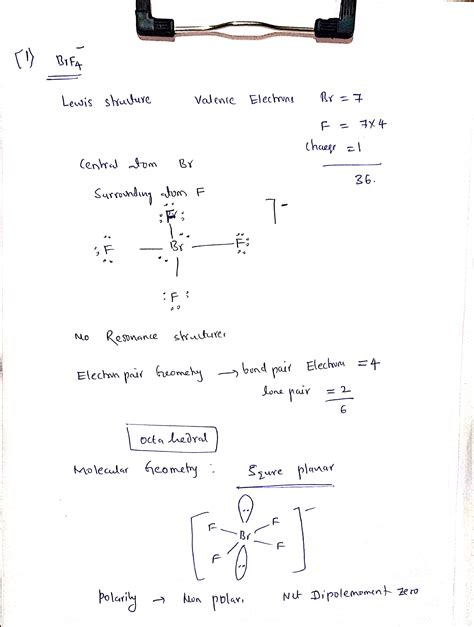 (1) BrF4-
Lewis structure Valence Electrons Br = 7
F = 7x4
Charge = 1
36.
Central atom Br
Surrounding atom F
F
F — Br — F
F
]-
No Resonance structures
Electron pair Geometry → bond pair Electrons = 4
lone pair = 2
6
octahedral
Molecular Geometry : Squre planar
F F
Br
F F
-
Polarity → Non polar. Net Dipolemoment zero